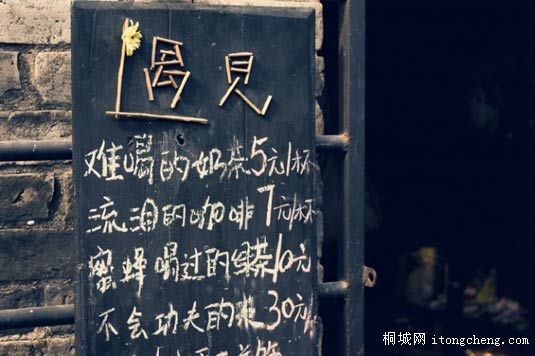 遇見
难喝的奶茶5元1杯
流泪的咖啡7元1杯
蜜蜂喝过的绿茶10元
不会功夫的 30元
桐城网 itongcheng.com